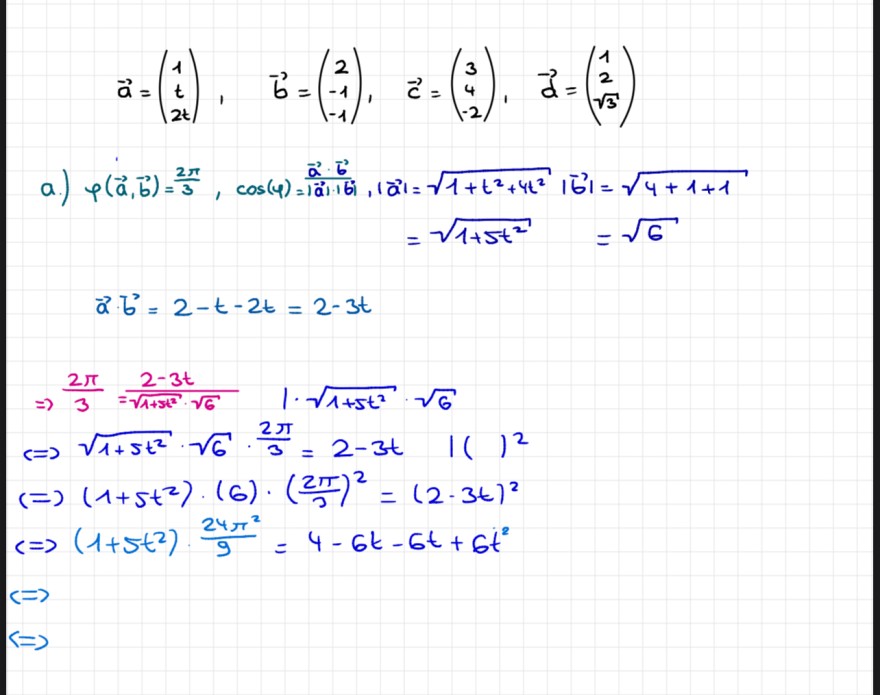 a⃗ = (1 t 2t), b⃗ = (2 -1 -1), c⃗ = (3 4 -2), d⃗ = (1 2 √3)
a.) φ(a⃗,b⃗) = 2π/3, cos(φ) = a⃗·b⃗/|a⃗|·|b⃗|, |a⃗| = √(1+t²+4t²) |b⃗| = √(4+1+1)
= √(1+5t²) = √6
a⃗·b⃗ = 2-t-2t = 2-3t
=> 2π/3 = 2-3t/√(1+5t²)·√6 |·√(1+5t²)·√6
<=> √(1+5t²)·√6·2π/3 = 2-3t |( )²
<=> (1+5t²)·(6)·(2π/3)² = (2-3t)²
<=> (1+5t²)·24π²/9 = 4-6t-6t+6t²
<=>
<=>